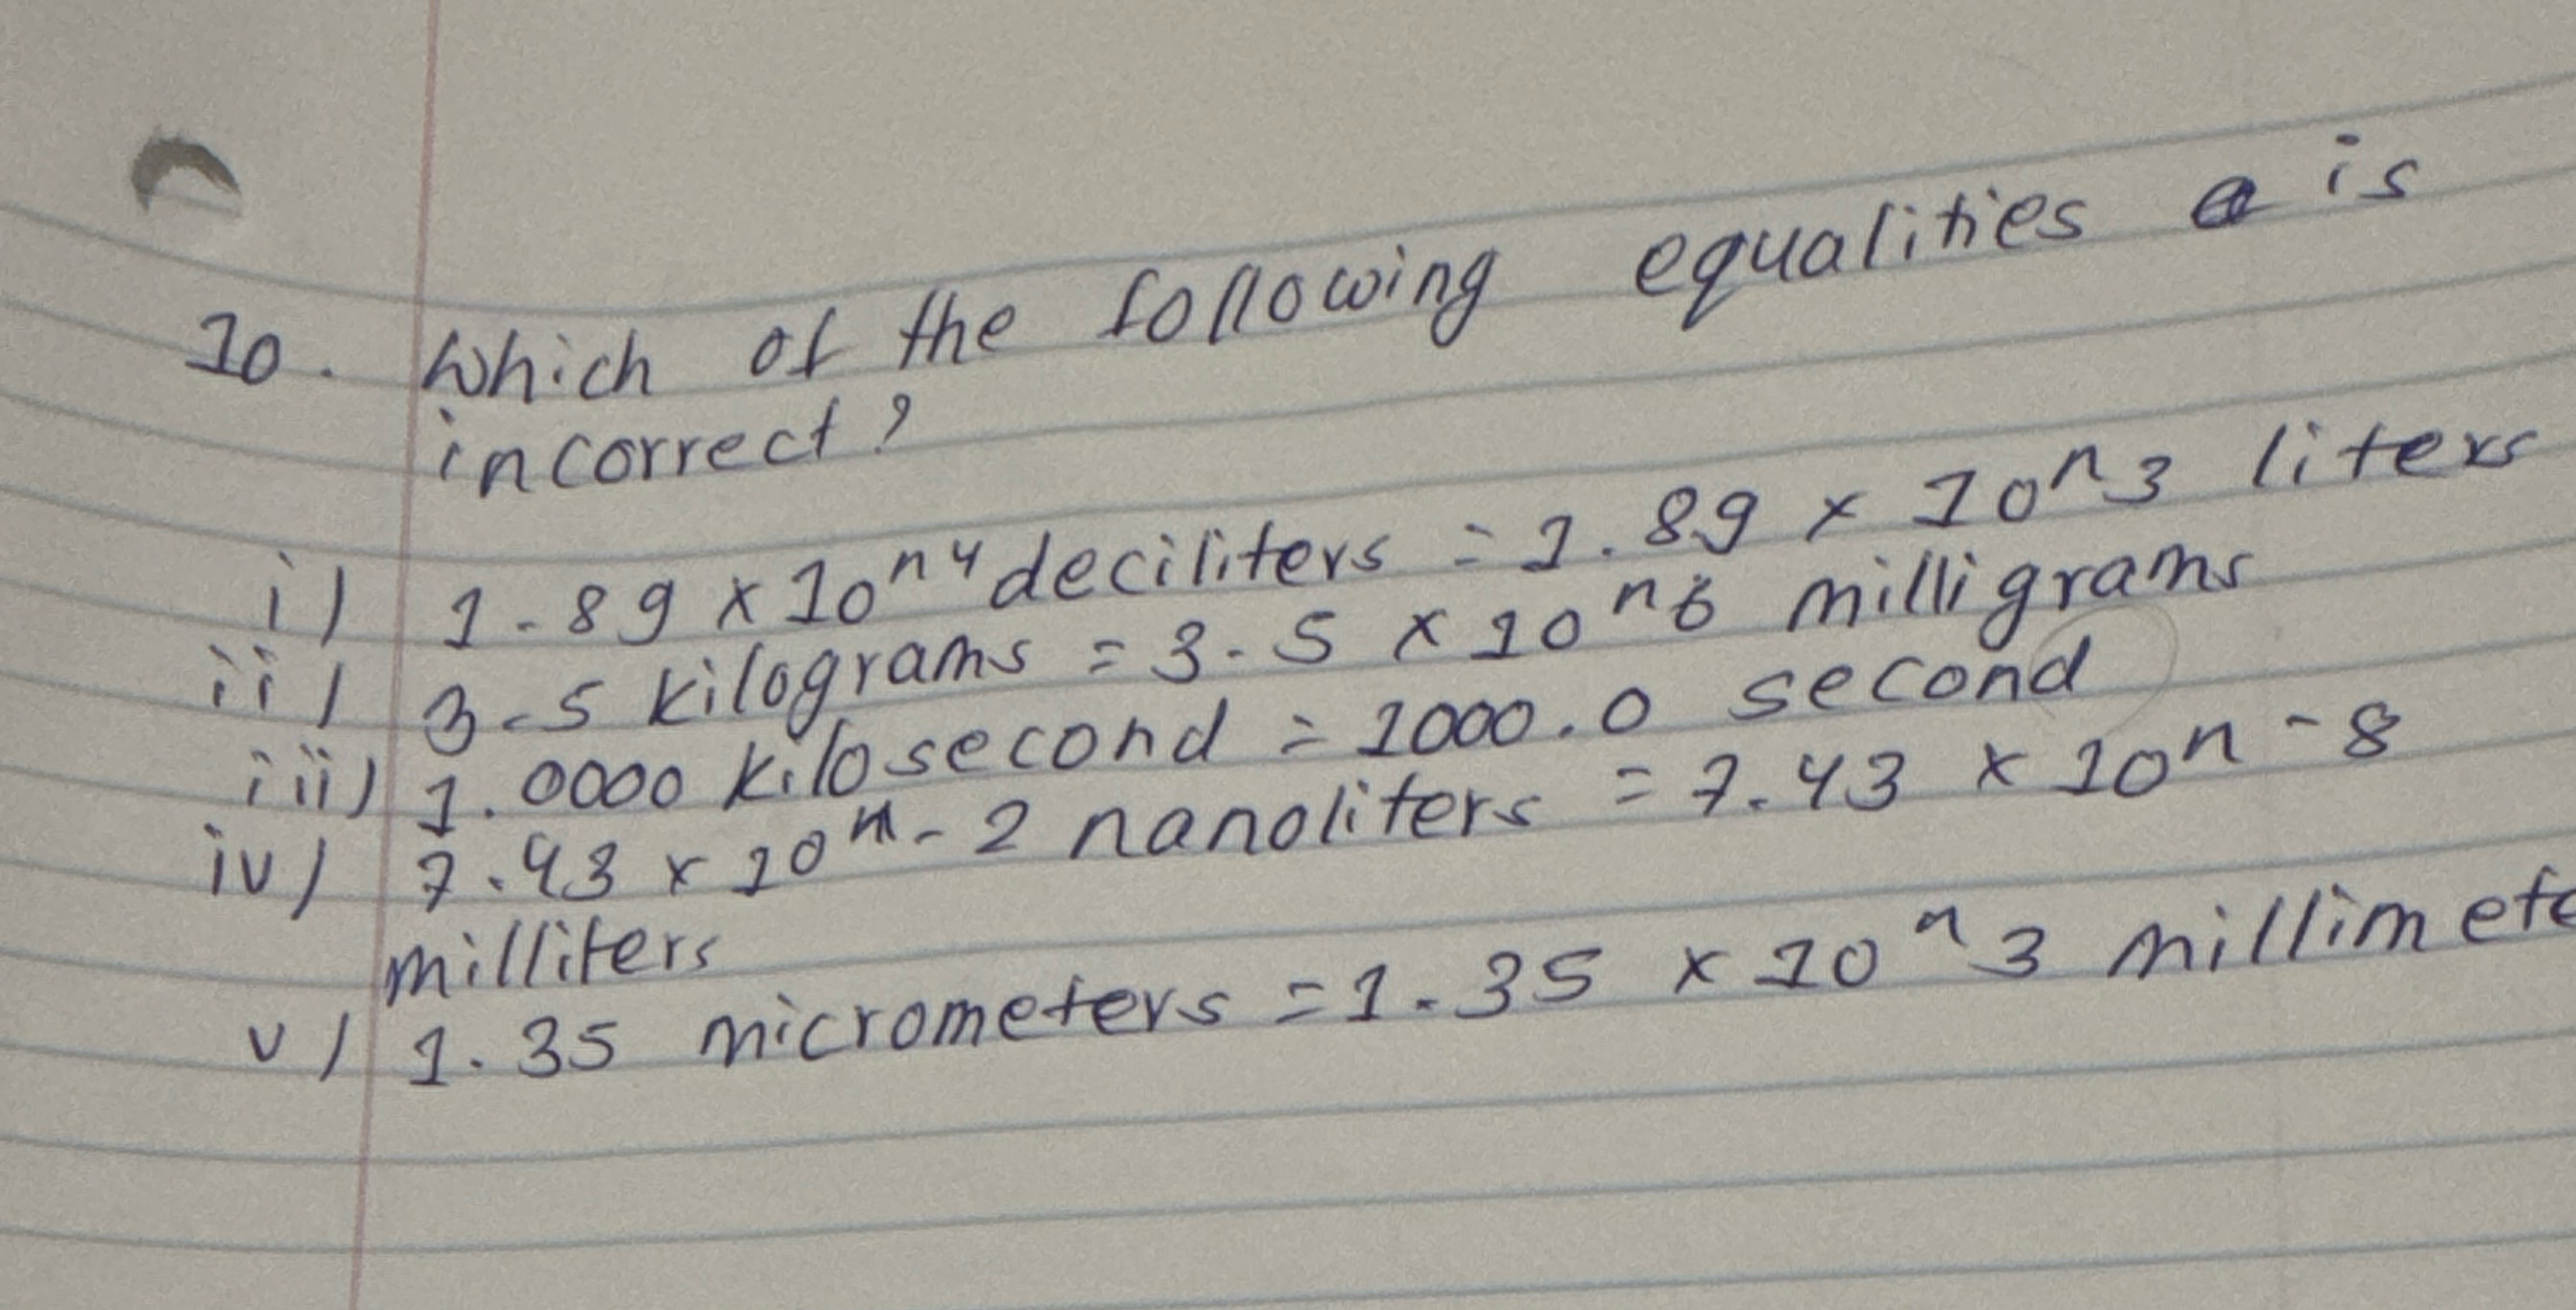 10. Which of the following equalities is
incorrect?
i) 1.89 x 10^4 deciliters = 1.89 x 10^3 liters
ii) 3.5 kilograms = 3.5 x 10^6 milligrams
iii) 1.0000 kilosecond = 1000.0 second
iv) 7.43 x 10^-2 nanoliters = 7.43 x 10^-8
milliters
v) 1.35 micrometers = 1.35 x 10^3